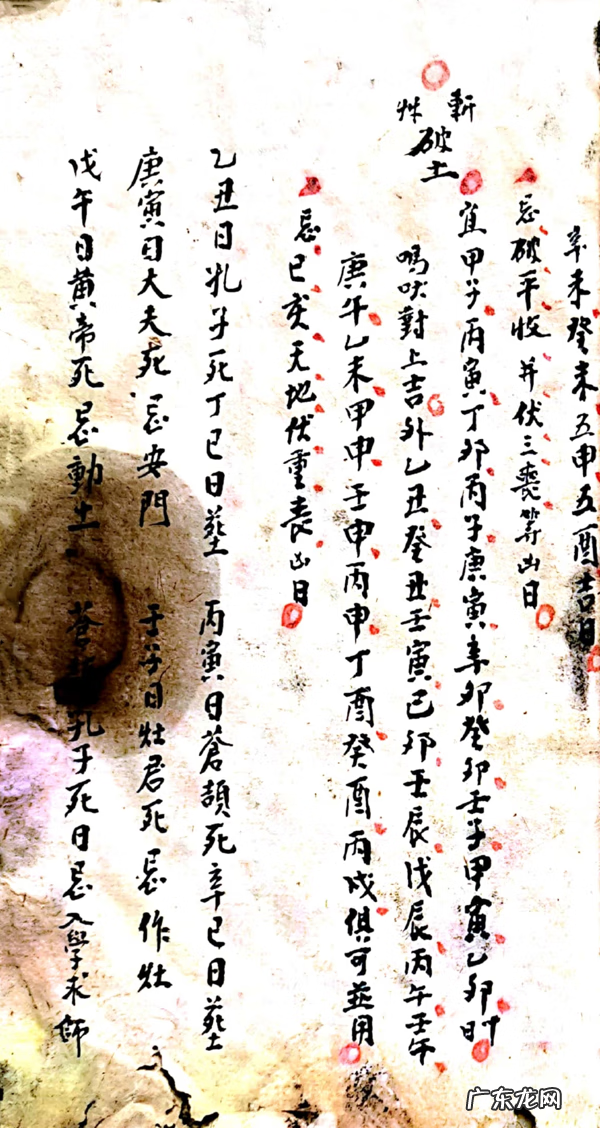 辛未癸未五申五酉吉日
忌破平收并伏三喪等凶日
斬艸
破土
宜甲子丙寅丁卯丙子庚寅辛卯癸卯壬子甲寅乙卯時
鳴吠對上吉外乙丑癸丑壬寅己卯壬辰戊辰丙午壬午
庚午乙未甲申壬申丙申丁酉癸酉丙戌俱可並用
忌巳亥天地伏重喪凶日
乙丑日孔子死丁巳日葬 丙寅日蒼頡死辛巳日葬
庚寅日大夫死忌安門 壬子日灶君死忌作灶
戊午日黃帝死忌動土 蒼頡孔子死日忌入學求師
广东龙网